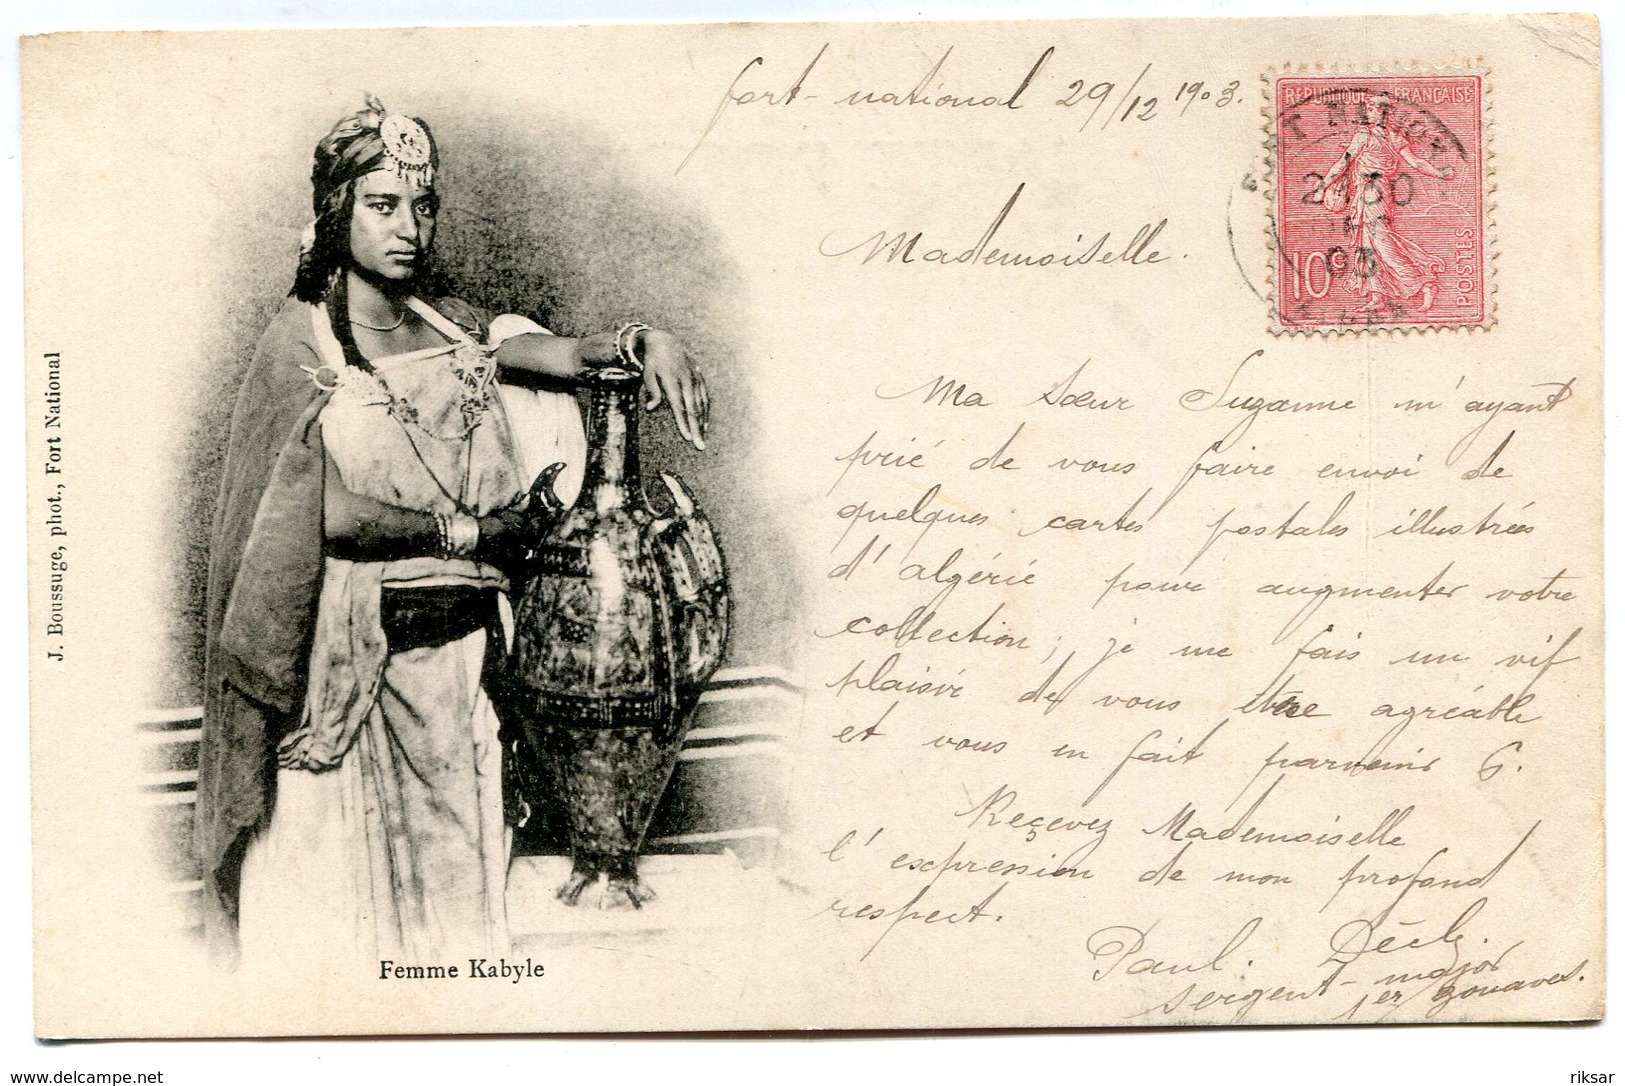 fort-national 29/12 1903.
REPUBLIQUE FRANÇAISE
10c
POSTES
2130
DEC
03
Mademoiselle.
Ma sœur Suzanne m'ayant
prié de vous faire envoi de
quelques cartes postales illustrées
d'algérie pour augmenter votre
collection; je me fais un vif
plaisir de vous être agréable
et vous en fait parvenir 6.
Reçevez Mademoiselle
l'expression de mon profond
respect.
Paul.
sergent-major
1er zouaves.
J. Boussuge, phot., Fort National
Femme Kabyle
www.delcampe.net
riksar